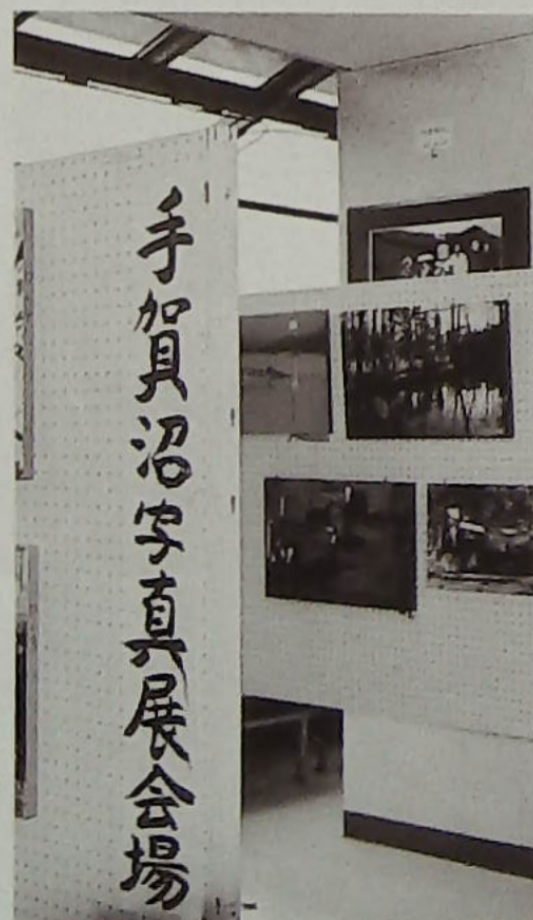 手賀沼写真展会場